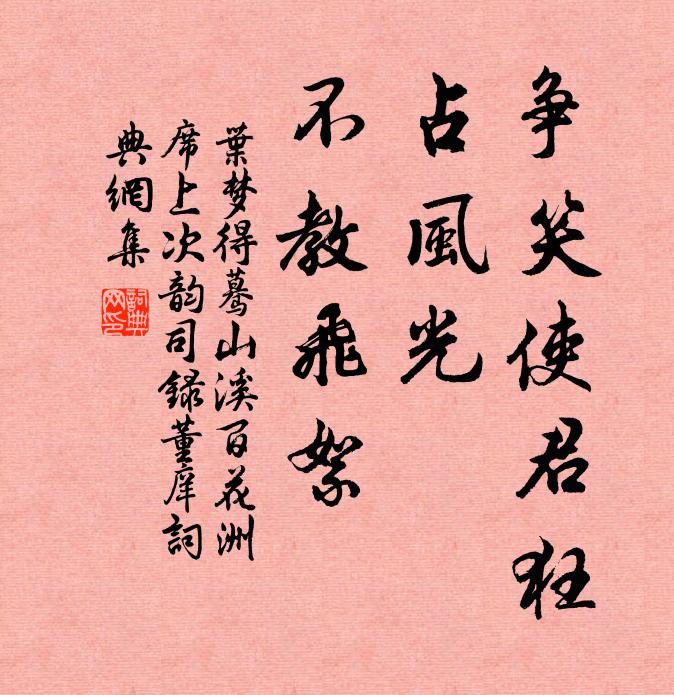 争笑使君狂
占風光
不教飛絮
葉梦得驀山溪百花洲
席上次韵司録董庠詞
典網集
詞典
网印